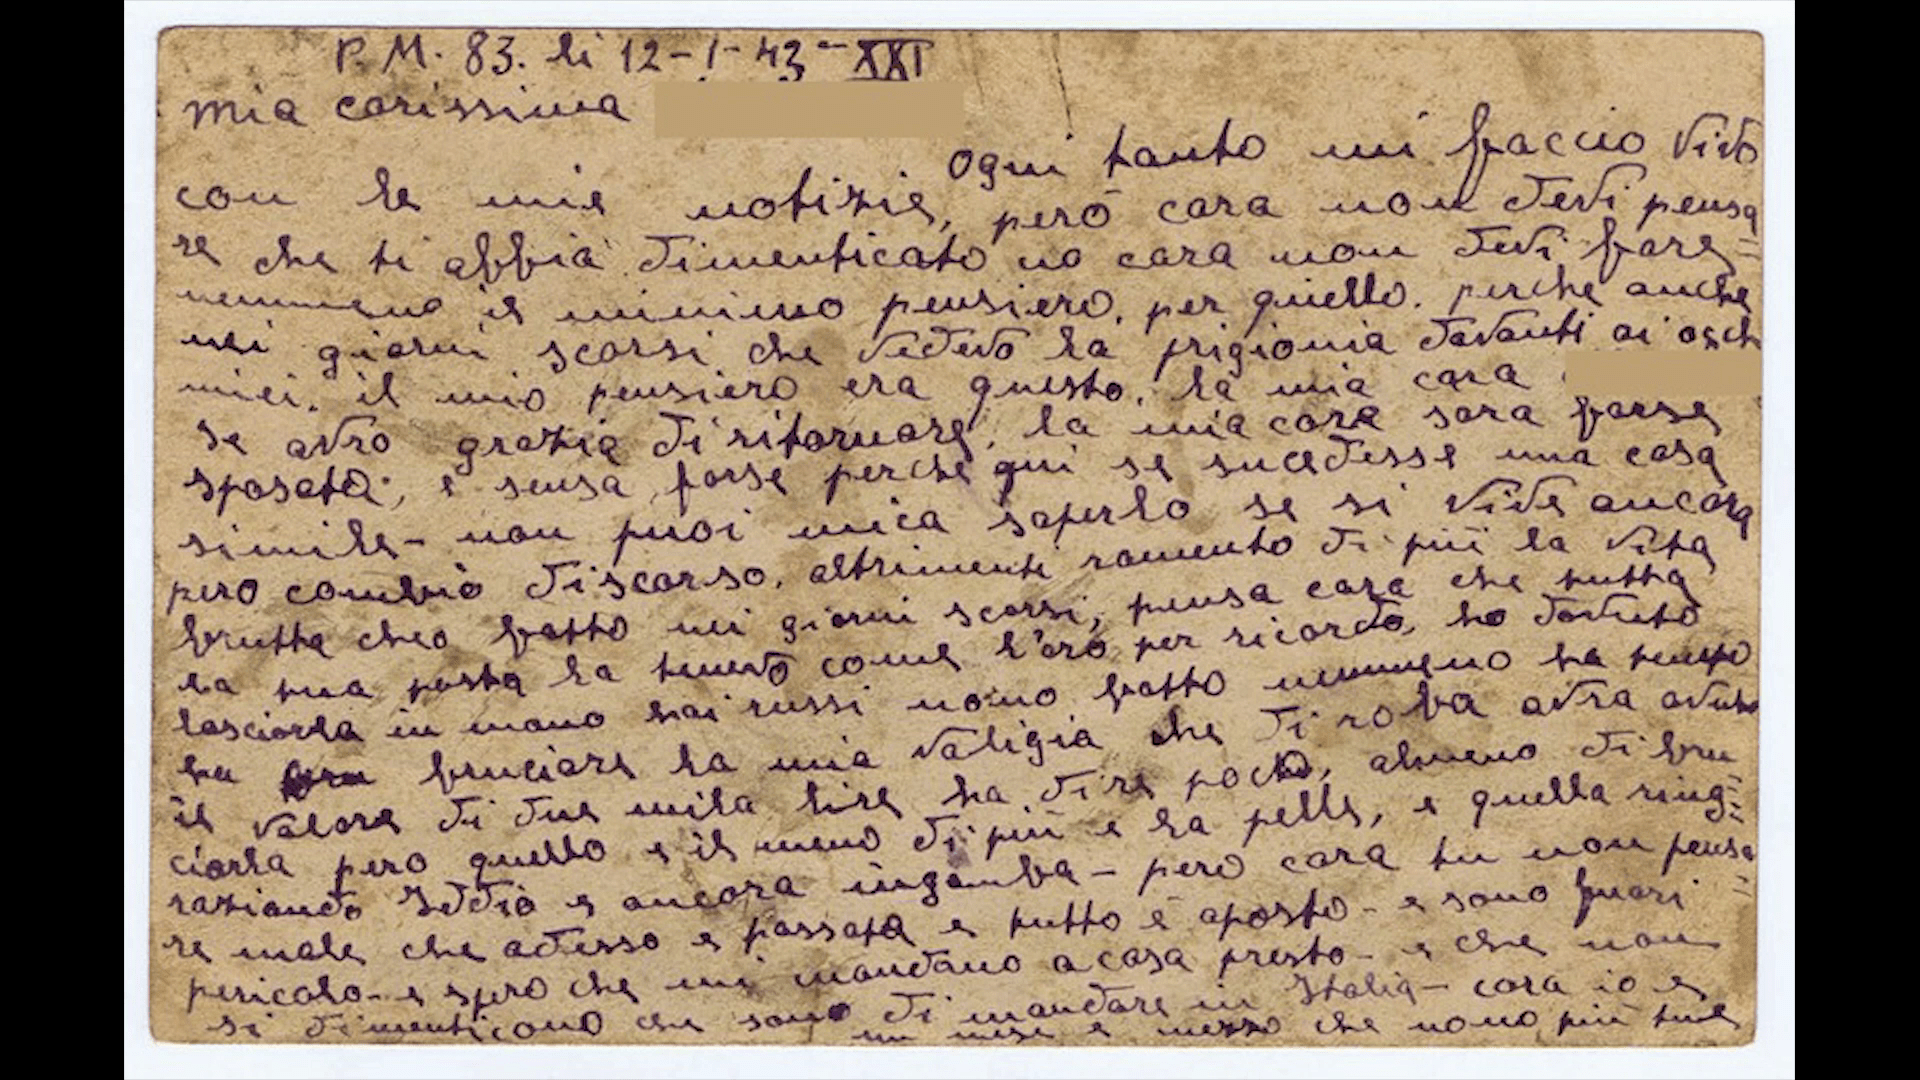 P. M. 83. li 12-1-43-XXI
mia carissima
Ogni tanto mi faccio vivo
con le mie notizie, però cara non devi pensa
re che ti abbia dimenticato no cara non devi fare
nemmeno il minimo pensiero, per quello. perche anche
nei giorni scorsi che vedevo la prigionia davanti ai occh
miei. il mio pensiero era questo, la mia cara
se avro grazia di ritornare, la mia cara sara forse
sposata, e sensa forse perche qui se sucedesse una cosa
simile - non puoi mica saperlo se si vive ancora
pero cambio discorso, altrimenti ramento di più la vita
brutta cheo fatto nei giorni scorsi, pensa cara che tutta
la tua posta la tenevo come l'oro per ricordo, ho dovuto
lasciarla in mano hai russi nono fatto nemmeno ha tempo
ha bruciare la mia valigia che di roba avra avuto
il valore di due mila lire ha dire poco, almeno di bru
ciarla pero quello e il meno di più e la pelle, e quella ring=
raziando Iddio e ancora ingamba - pero cara tu non pensa
re male che adesso e passata e tutto è aposto - e sono fuori
pericolo - e spero che mi mandano a casa presto - e che non
si dimenticono che sono di mandare in Italia - cara io e
un mese e mezzo che nono più tue